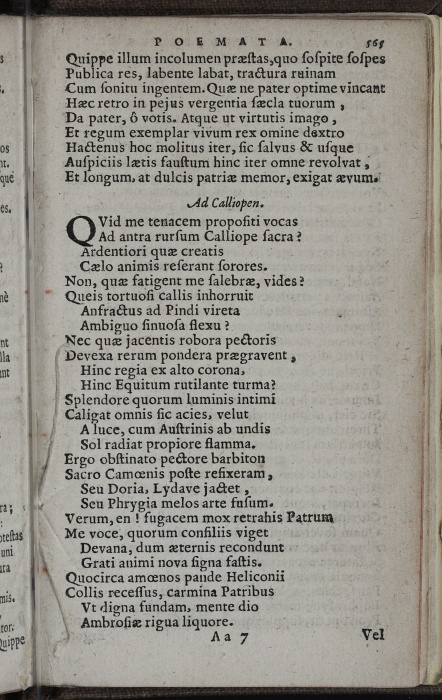 POEMATA. 565
Quippe illum incolumen præstas, quo sospite sospes
Publica res, labente labat, tractura ruinam
Cum sonitu ingentem. Quæ ne pater optime vincant
Hæc retro in pejus vergentia sæcla tuorum,
Da pater, ô votis. Atque ut virtutis imago,
Et regum exemplar vivum rex omine dextro
Hactenus hoc molitus iter, sic salvus & usque
Auspiciis lætis faustum hinc iter omne revolvat,
Et longum, at dulcis patriæ memor, exigat ævum.
Ad Calliopen.
QVid me tenacem propositi vocas
Ad antra rursum Calliope sacra?
Ardentiori quæ creatis
Cælo animis reserant sorores.
Non, quæ fatigent me salebræ, vides?
Queis tortuosi callis inhorruit
Anfractus ad Pindi vireta
Ambiguo sinuosa flexu?
Nec quæ jacentis robora pectoris
Devexa rerum pondera prægravent,
Hinc regia ex alto corona,
Hinc Equitum rutilante turma?
Splendore quorum luminis intimi
Caligat omnis sic acies, velut
A luce, cum Austrinis ab undis
Sol radiat propiore flamma.
Ergo obstinato pectore barbiton
Sacro Camœnis poste refixeram,
Seu Doria, Lydave jactet,
Seu Phrygia melos arte fusum.
Verum, en! fugacem mox retrahis Patrum
Me voce, quorum consiliis viget
Devana, dum æternis recondunt
Grati animi nova signa fastis.
Quocirca amœnos pande Heliconii
Collis recessus, carmina Patribus
Vt digna fundam, mente dio
Ambrosiæ rigua liquore.
Aa 7 Vel